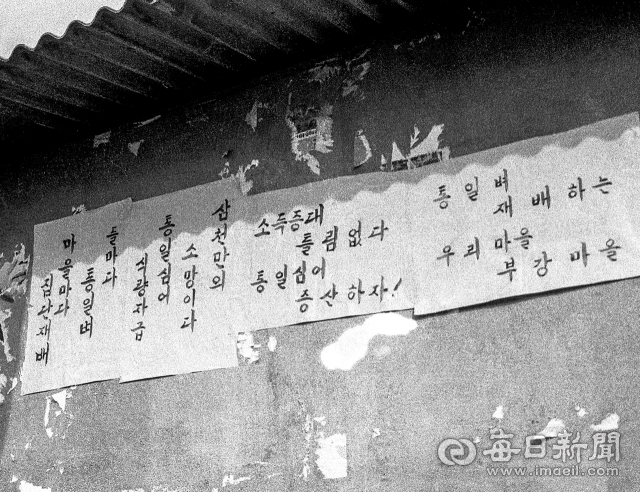 들마다
통일벼
마을마다
집단재배
삼천만의
소망이다
통일심어
식량자급
소득증대
틀림없다
통일심어
증산하자!
통일벼
재배하는
우리마을
부강마을
每日新聞
www.imaeil.com